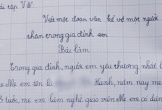 Viết một đoạn văn kể về một người
thân trong gia đình em
Bài làm
Trong gia đình, người em yêu thương nhất l
mẹ em tên là Hạnh, năm nay mẹ
tuổi, mẹ em làm nghề giáo viên mẹ em có dá